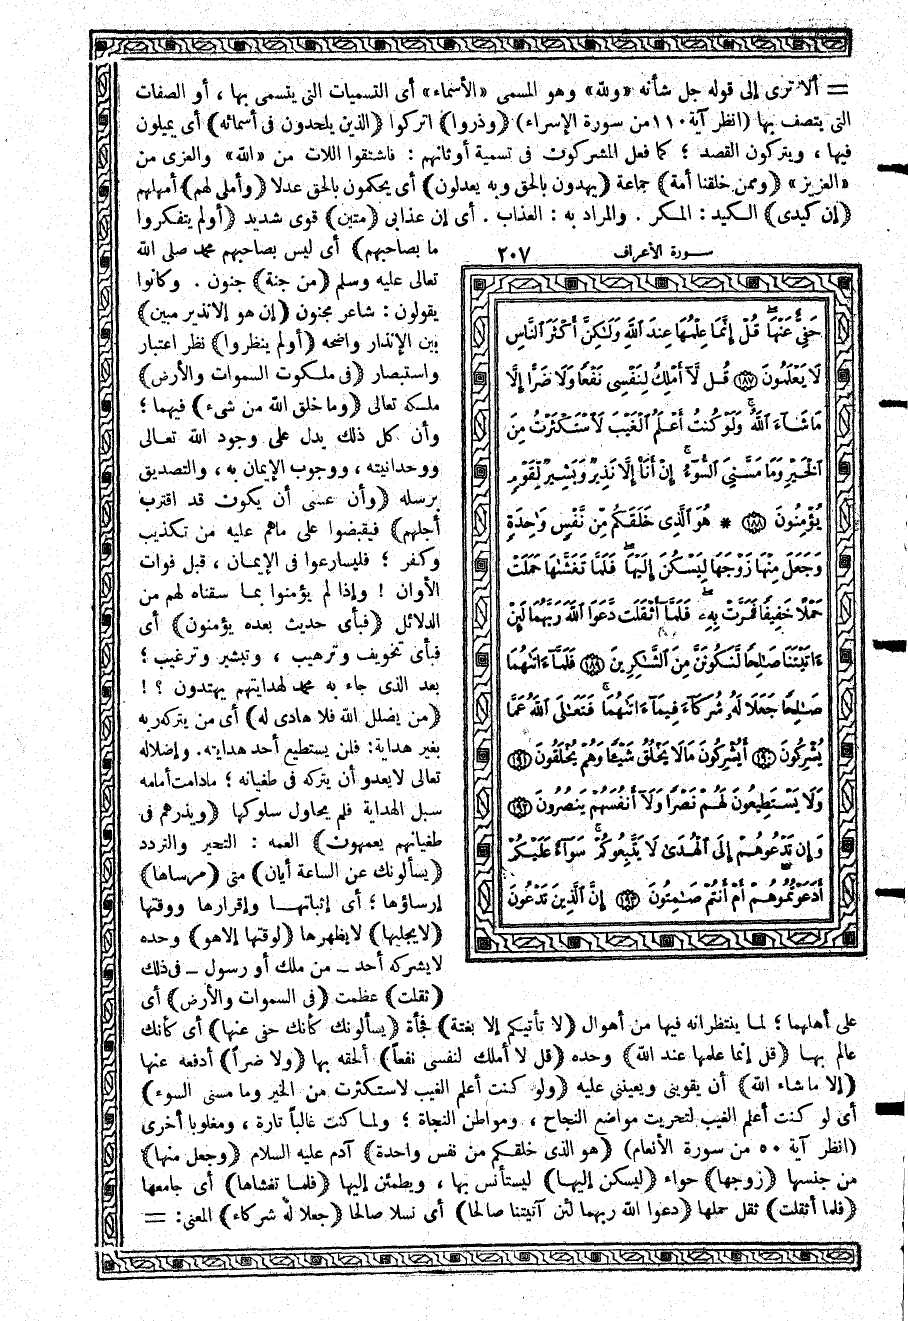 = ألا ترى إلى قوله جل شأنه «ولله» وهو المسمى «الأسماء» أى التسميات التى يتسمى بها ، أو الصفات
التى يتصف بها (انظر آية ١١٠ من سورة الإسراء) (وذروا) اتركوا (الذين يلحدون فى أسمائه) أى يميلون
فيها ، ويتركون القصد ؛ كما فعل المشركون فى تسمية أوثانهم : فاشتقوا اللات من «الله» والعزى من
«العزيز» (وممن خلقنا أمة) جماعة (يهدون بالحق وبه يعدلون) أى يحكمون بالحق عدلا (وأملى لهم) أمهلهم
(إن كيدى) الكيد : المكر . والمراد به : العذاب . أى إن عذابى (متين) قوى شديد (أولم يتفكروا
ما بصاحبهم) أى ليس بصاحبهم محمد صلى الله
تعالى عليه وسلم (من جنة) جنون . وكانوا
يقولون : شاعر مجنون (إن هو إلا نذير مبين)
بين الإنذار واضحه (أولم ينظروا) نظر اعتبار
واستبصار (فى ملكوت السموات والأرض)
ملكه تعالى (وما خلق الله من شىء) فيهما ؛
وأن كل ذلك يدل على وجود الله تعالى
ووحدانيته ، ووجوب الإيمان به ، والتصديق
برسله (وأن عسى أن يكون قد اقترب
أجلهم) فيقبضوا على ماهم عليه من تكذيب
وكفر ؛ فليسارعوا فى الإيمان ، قبل فوات
الأوان ! وإذا لم يؤمنوا بما سقناه لهم من
الدلائل (فبأى حديث بعده يؤمنون) أى
فبأى تخويف وترهيب ، وتبشير وترغيب ؛
بعد الذى جاء به محمد لهدايتهم يهتدون ؟ !
(من يضلل الله فلا هادى له) أى من يتركه ربه
بغير هداية : فلن يستطيع أحد هدايته . وإضلاله
تعالى لايعدو أن يتركه فى طغيانه ؛ مادامت أمامه
سبل الهداية فلم يحاول سلوكها (ويذرهم فى
طغيانهم يعمهون) العمه : التحير والتردد
(يسألونك عن الساعة أيان) متى (مرساها)
إرساؤها ؛ أى إثباتها وإقرارها ووقتها
(لايجليها) لايظهرها (لوقتها إلا هو) وحده
لايشركه أحد ـ من ملك أو رسول ـ فى ذلك
(ثقلت) عظمت (فى السموات والأرض) أى
سورة الأعراف ٢٠٧
حَفِىٌّ عَنْهَا ۖ قُلْ إِنَّمَا عِلْمُهَا عِندَ ٱللَّهِ وَلَٰكِنَّ أَكْثَرَ ٱلنَّاسِ
لَا يَعْلَمُونَ ﴿١٨٧﴾ قُل لَّآ أَمْلِكُ لِنَفْسِى نَفْعًا وَلَا ضَرًّا إِلَّا
مَا شَآءَ ٱللَّهُ ۚ وَلَوْ كُنتُ أَعْلَمُ ٱلْغَيْبَ لَٱسْتَكْثَرْتُ مِنَ
ٱلْخَيْرِ وَمَا مَسَّنِىَ ٱلسُّوٓءُ ۚ إِنْ أَنَا۠ إِلَّا نَذِيرٌ وَبَشِيرٌ لِّقَوْمٍ
يُؤْمِنُونَ ﴿١٨٨﴾ * هُوَ ٱلَّذِى خَلَقَكُم مِّن نَّفْسٍ وَٰحِدَةٍ
وَجَعَلَ مِنْهَا زَوْجَهَا لِيَسْكُنَ إِلَيْهَا ۖ فَلَمَّا تَغَشَّىٰهَا حَمَلَتْ
حَمْلًا خَفِيفًا فَمَرَّتْ بِهِۦ ۖ فَلَمَّآ أَثْقَلَت دَّعَوَا ٱللَّهَ رَبَّهُمَا لَئِنْ
ءَاتَيْتَنَا صَٰلِحًا لَّنَكُونَنَّ مِنَ ٱلشَّٰكِرِينَ ﴿١٨٩﴾ فَلَمَّآ ءَاتَىٰهُمَا
صَٰلِحًا جَعَلَا لَهُۥ شُرَكَآءَ فِيمَآ ءَاتَىٰهُمَا ۚ فَتَعَٰلَى ٱللَّهُ عَمَّا
يُشْرِكُونَ ﴿١٩٠﴾ أَيُشْرِكُونَ مَا لَا يَخْلُقُ شَيْـًٔا وَهُمْ يُخْلَقُونَ ﴿١٩١﴾
وَلَا يَسْتَطِيعُونَ لَهُمْ نَصْرًا وَلَآ أَنفُسَهُمْ يَنصُرُونَ ﴿١٩٢﴾
وَإِن تَدْعُوهُمْ إِلَى ٱلْهُدَىٰ لَا يَتَّبِعُوكُمْ ۚ سَوَآءٌ عَلَيْكُمْ
أَدَعَوْتُمُوهُمْ أَمْ أَنتُمْ صَٰمِتُونَ ﴿١٩٣﴾ إِنَّ ٱلَّذِينَ تَدْعُونَ
على أهلهما ؛ لما ينتظرانه فيها من أهوال (لا تأتيكم إلا بغتة) فجأة (يسألونك كأنك حفى عنها) أى كأنك
عالم بها (قل إنما علمها عند الله) وحده (قل لا أملك لنفسى نفعاً) ألحقه بها (ولا ضراً) أدفعه عنها
(إلا ما شاء الله) أن يقوينى ويعيننى عليه (ولو كنت أعلم الغيب لاستكثرت من الخير وما مسنى السوء)
أى لو كنت أعلم الغيب لتحريت مواضع النجاح ، ومواطن النجاة ؛ ولما كنت غالباً تارة ، ومغلوبا أخرى
(انظر آية ٥٠ من سورة الأنعام) (هو الذى خلقكم من نفس واحدة) آدم عليه السلام (وجعل منها)
من جنسها (زوجها) حواء (ليسكن إليها) ليستأنس بها ، ويطمئن إليها (فلما تغشاها) أى جامعها
(فلما أثقلت) ثقل حملها (دعوا الله ربهما لئن آتيتنا صالحا) أى نسلا صالحا (جعلا له شركاء) المعنى : =